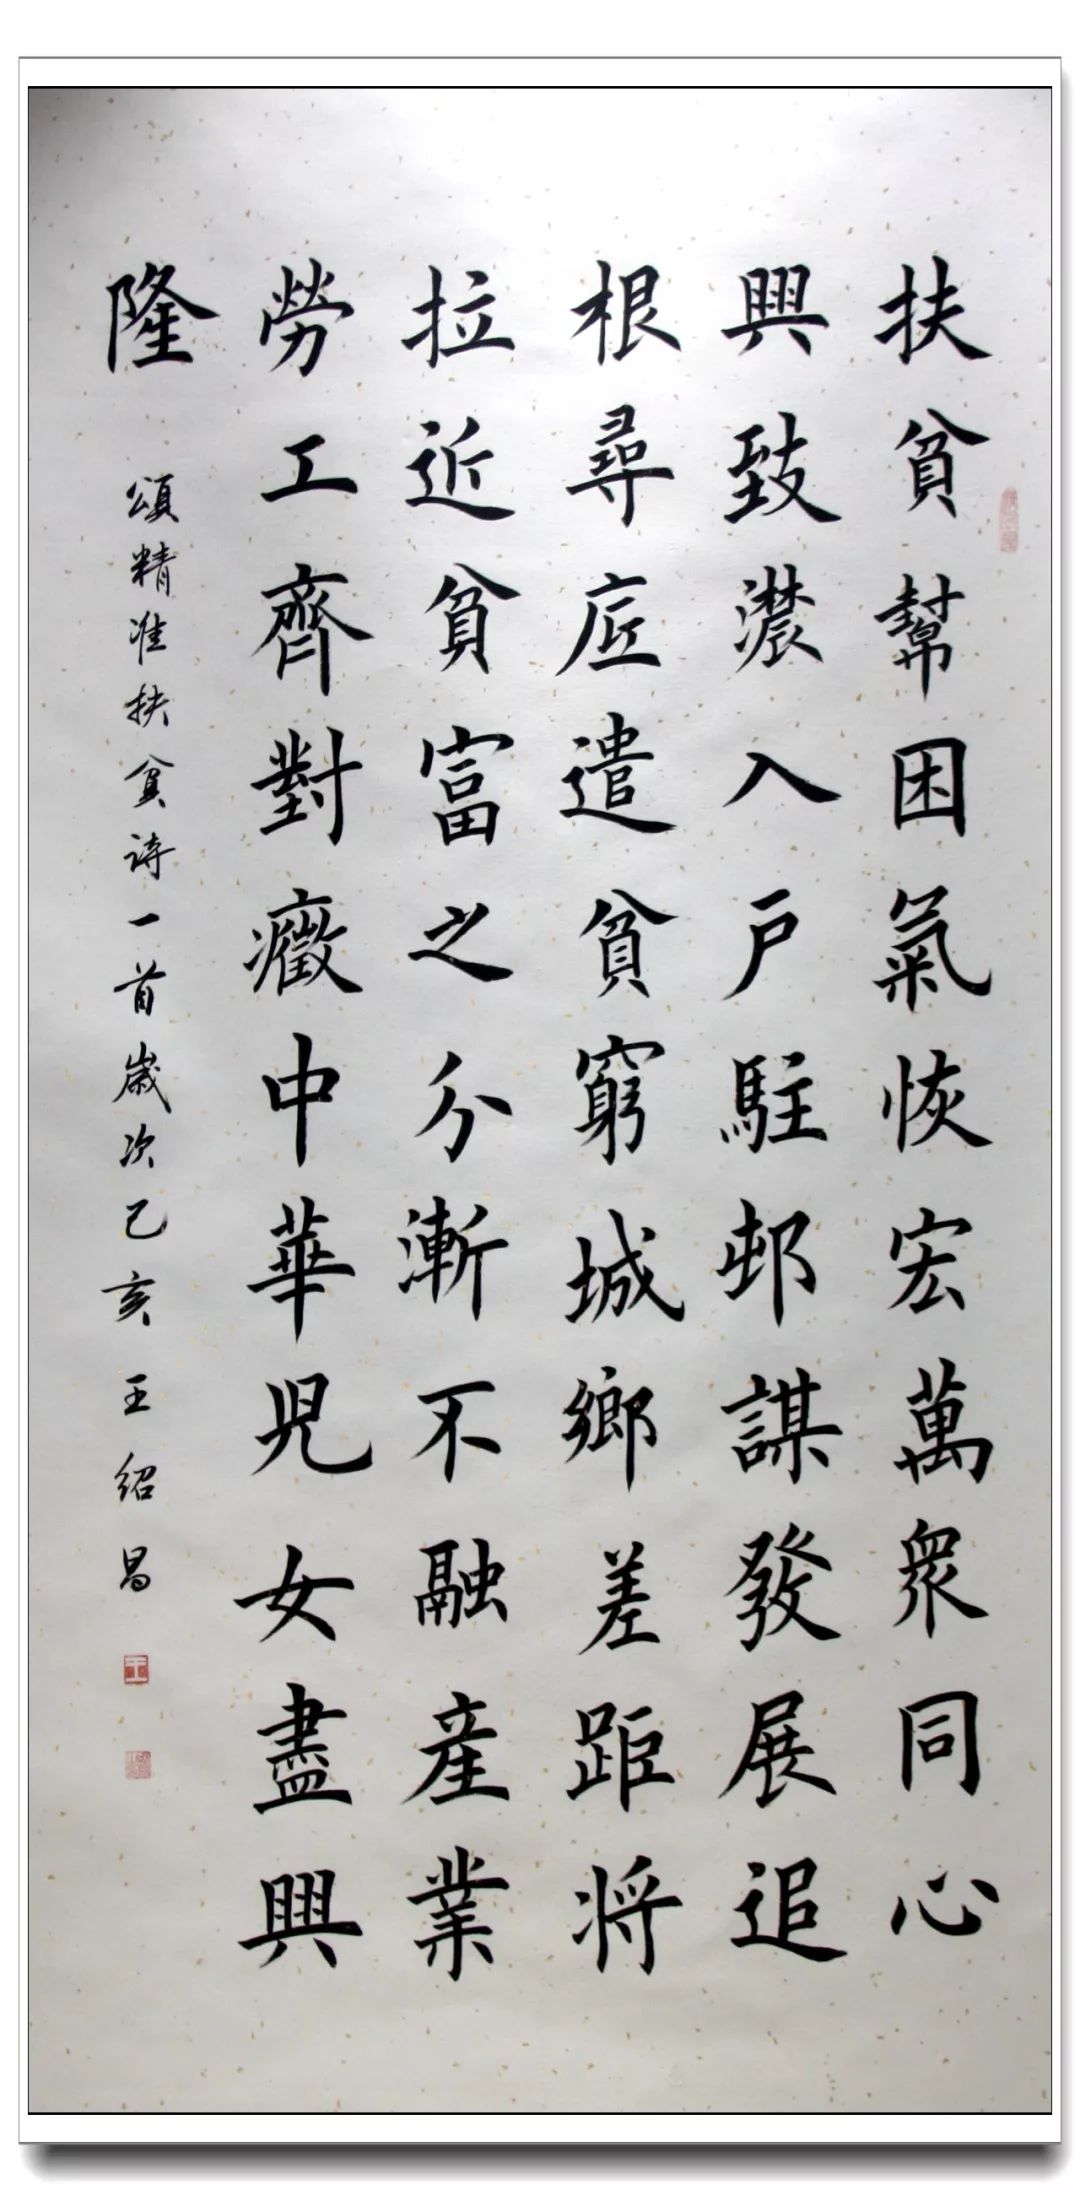 扶貧幫困氣恢宏萬衆同心
興致濃入戶駐邨謀發展追
根尋底遣貧窮城鄉差距将
拉近貧富之分漸不融産業
勞工齊對癥中華児女盡興
隆
頌精准扶貧诗一首歲次己亥王绍昌
王